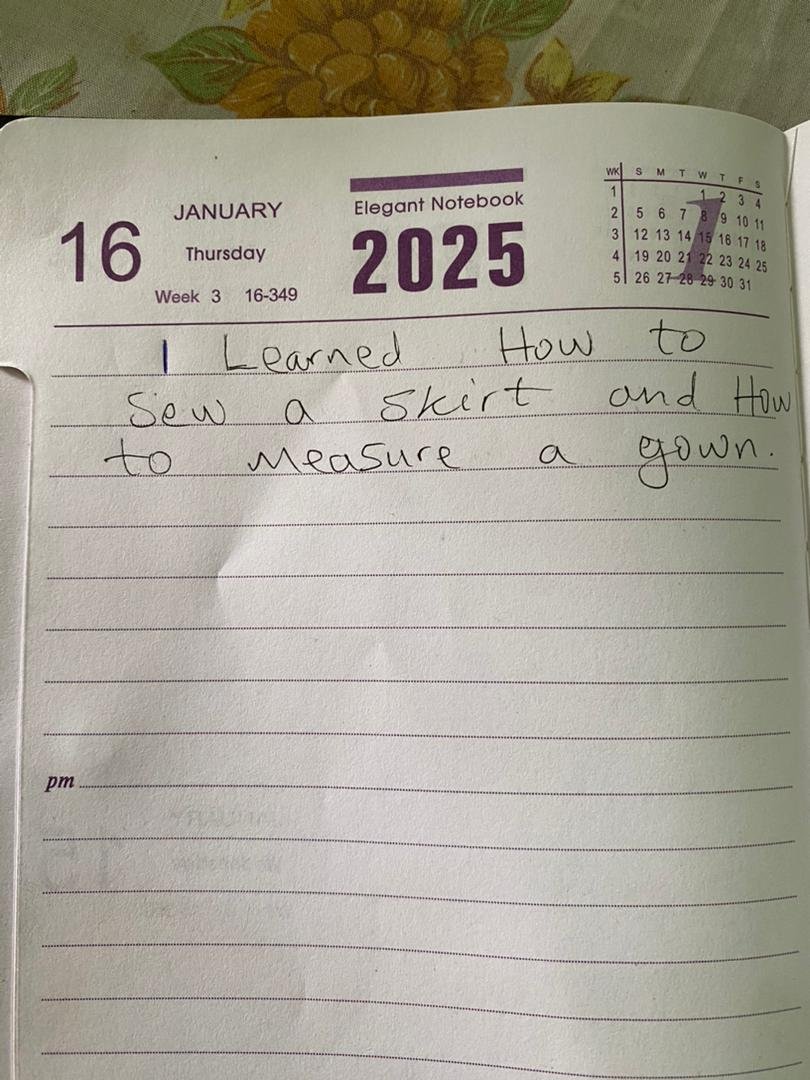 16
JANUARY
Thursday
Week 3 16-349
Elegant Notebook
2025
WK S M T W T F S
1 1 2 3 4
2 5 6 7 8 9 10 11
3 12 13 14 15 16 17 18
4 19 20 21 22 23 24 25
5 26 27 28 29 30 31
1
I Learned How to
Sew a skirt and How
to measure a gown.
pm